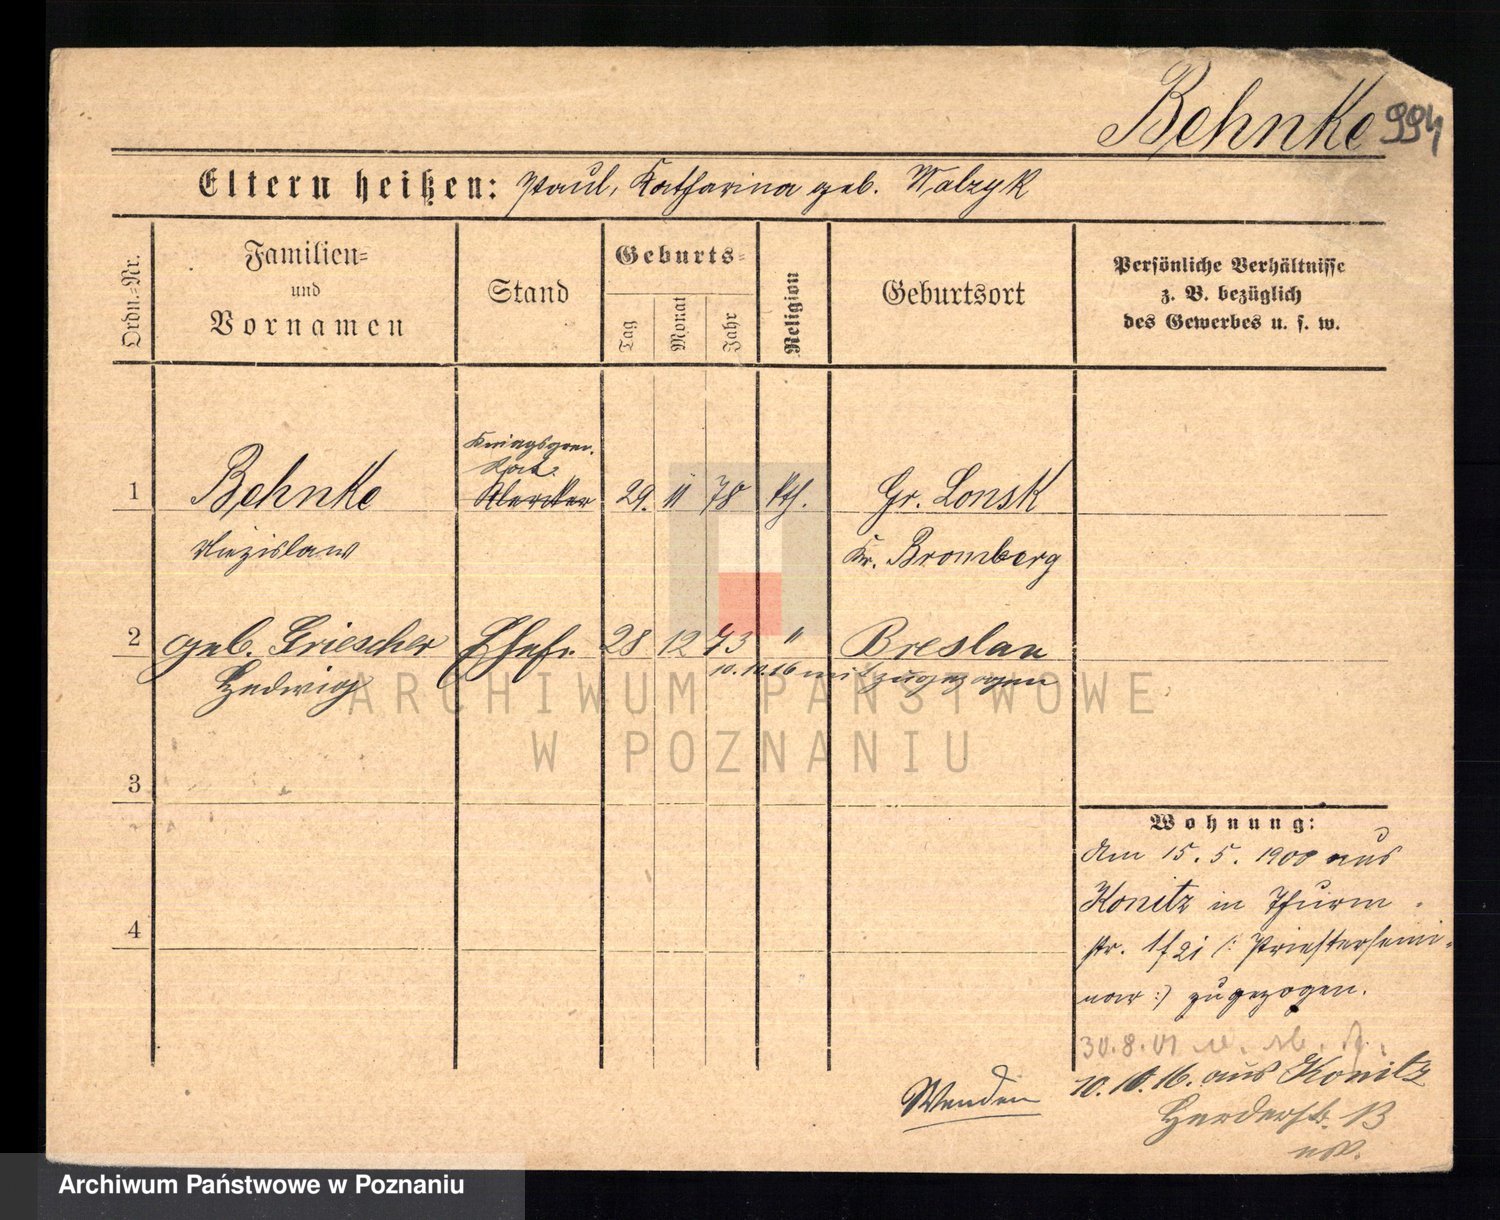 Behnke 994
Eltern heißen: Paul, Katharina geb. Walzyk
Ordn.-Nr.
Familien-
und
Vornamen
Stand
Geburts-
Tag
Monat
Jahr
Religion
Geburtsort
Persönliche Verhältnisse
z. B. bezüglich
des Gewerbes u. s. w.
1
Behnke
Kriegsger.
Rat
29. 11 78
kth.
Gr. Lonsk
Kr. Bromberg
2
geb. Griescher
Hedwig
Ehefr.
28 12 73 "
Breslau
10.10.16 mit zugezogen
3
4
Wohnung:
Am 15. 5. 1900 aus
Konitz in Thurm-
str. 1 / : Priestersemi-
nar :/ zugezogen.
30.8.01
10.10.16. aus Konitz
Herderstr. 13
Wenden
ARCHIWUM PAŃSTWOWE
W POZNANIU
Archiwum Państwowe w Poznaniu